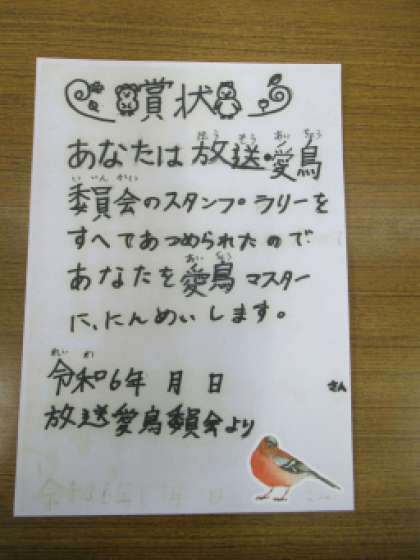 賞状
あなたは放送・愛鳥
委員会のスタンプラリーを
すべてあつめられたので
あなたを愛鳥マスター
に、にんめいします。
令和6年 月 日 さん
放送愛鳥委員会より